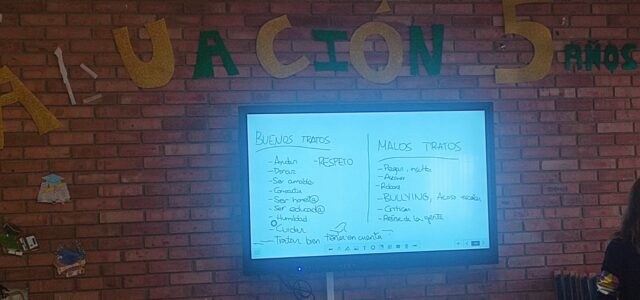 UACIÓN 5 AÑOS
BUENOS TRATOS
- Ayudar - RESPETO
- Donar
- Ser amable
- Ser honest@
- Ser educad@
- Humildad
- Cuidar
- Tratar bien Tener en cuenta
MALOS TRATOS
- Pegar, insultar
- Robar
- BULLYING, Acoso escolar
- Criticar
- Reirse de la gente